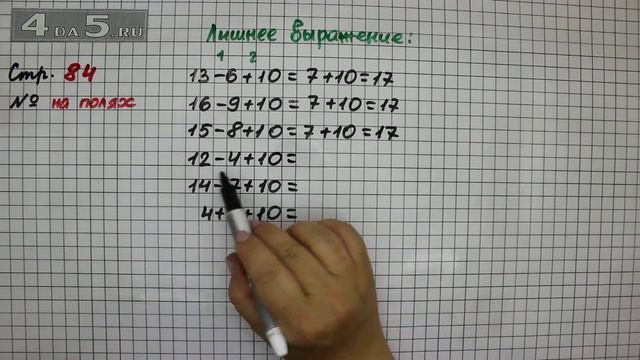 4 ДА 5.RU
Лишнее выражение:
1 2
Стр. 84
№ на полях
13-6+10=7+10=17
16-9+10=7+10=17
15-8+10=7+10=17
12-4+10=
14-7+10=
4+ +10=